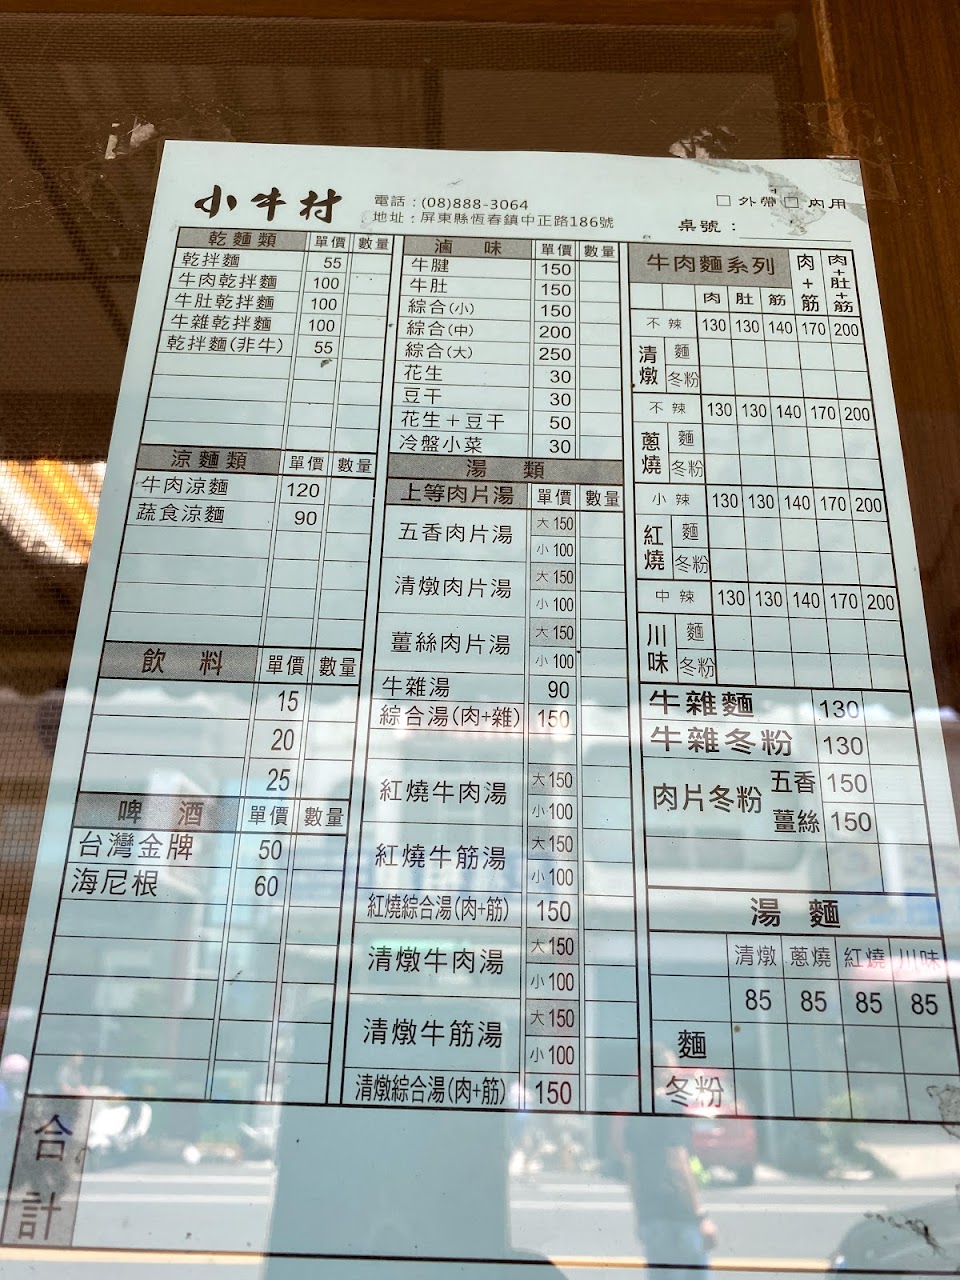 小牛村
電話：(08)888-3064
地址：屏東縣恆春鎮中正路186號
□ 外帶 □ 內用
桌號：
乾麵類 單價 數量
乾拌麵 55
牛肉乾拌麵 100
牛肚乾拌麵 100
牛雜乾拌麵 100
乾拌麵(非牛) 55
涼麵類 單價 數量
牛肉涼麵 120
蔬食涼麵 90
飲料 單價 數量
15
20
25
啤酒 單價 數量
台灣金牌 50
海尼根 60
合計
滷味 單價 數量
牛腱 150
牛肚 150
綜合(小) 150
綜合(中) 200
綜合(大) 250
花生 30
豆干 30
花生＋豆干 50
冷盤小菜 30
湯類
上等肉片湯 單價 數量
五香肉片湯 大150
小100
清燉肉片湯 大150
小100
薑絲肉片湯 大150
小100
牛雜湯 90
綜合湯(肉+雜) 150
紅燒牛肉湯 大150
小100
紅燒牛筋湯 大150
小100
紅燒綜合湯(肉+筋) 150
清燉牛肉湯 大150
小100
清燉牛筋湯 大150
小100
清燉綜合湯(肉+筋) 150
牛肉麵系列 肉+筋 肉+肚+筋
肉 肚 筋
不辣 130 130 140 170 200
清燉 麵
冬粉
不辣 130 130 140 170 200
蔥燒 麵
冬粉
小辣 130 130 140 170 200
紅燒 麵
冬粉
中辣 130 130 140 170 200
川味 麵
冬粉
牛雜麵 130
牛雜冬粉 130
肉片冬粉 五香 150
薑絲 150
湯麵
清燉 蔥燒 紅燒 川味
85 85 85 85
麵
冬粉